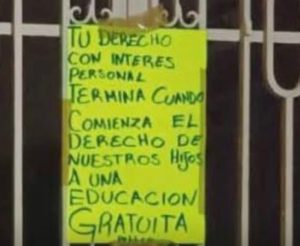 TU DERECHO
CON INTERES
PERSONAL
TERMINA CUANDO
COMIENZA EL
DERECHO DE
NUESTROS HIJOS
A UNA
EDUCACION
GRATUITA